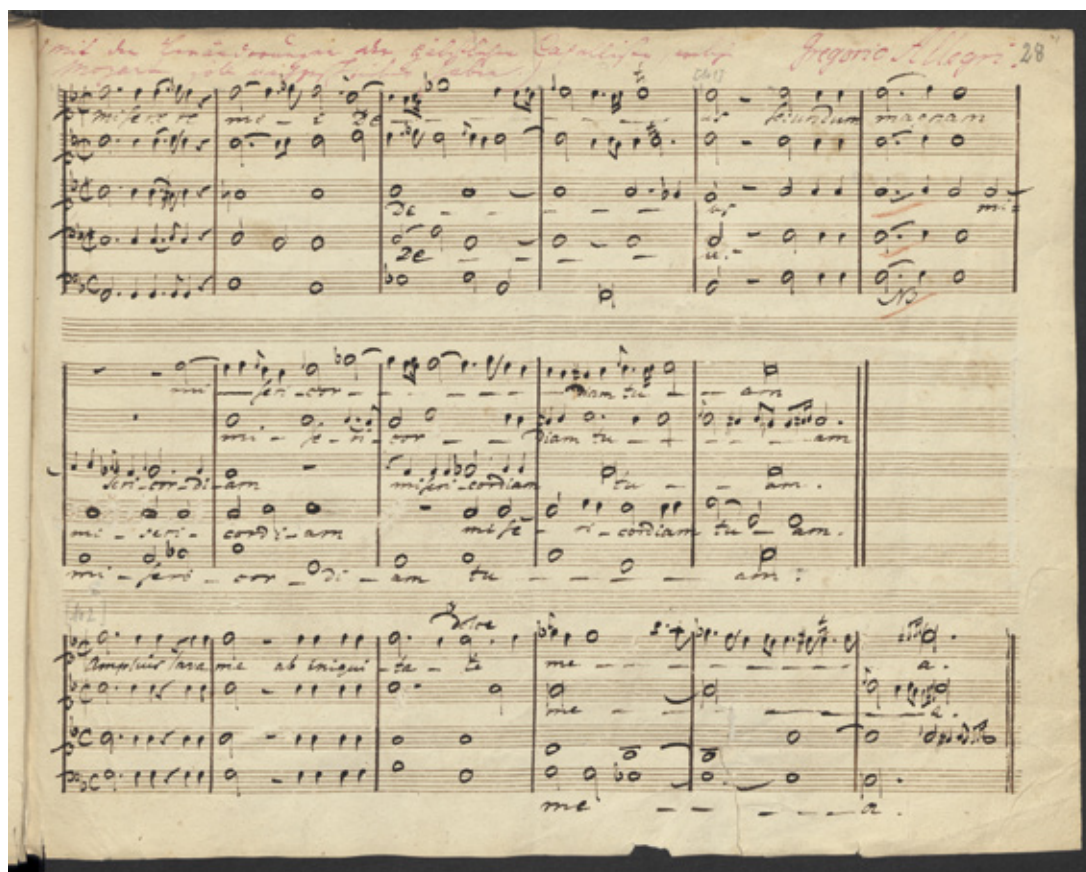 mit den Veränderungen der päpstlichen Gregorio Allegri. 28
Mozart haben.)
miserere me - i De - - - - us secundum magnam
De - - - - - us mi=
De - - - - - u. -
NB
mi - seri - cor - - - - diam tu - - am
mi - se - ri - cor - - - diam tu - - - - am
seri - cor - di - am misericordiam tu - - am.
mi - seri - cordi - am mise - ri - cordiam tu - am.
mi - seri - cor - di - am tu - - - - am.
dolce
Amplius lava me ab iniqui - ta - te me - - - - - - - a.
me - - - - - - a.
me - - - - - a.